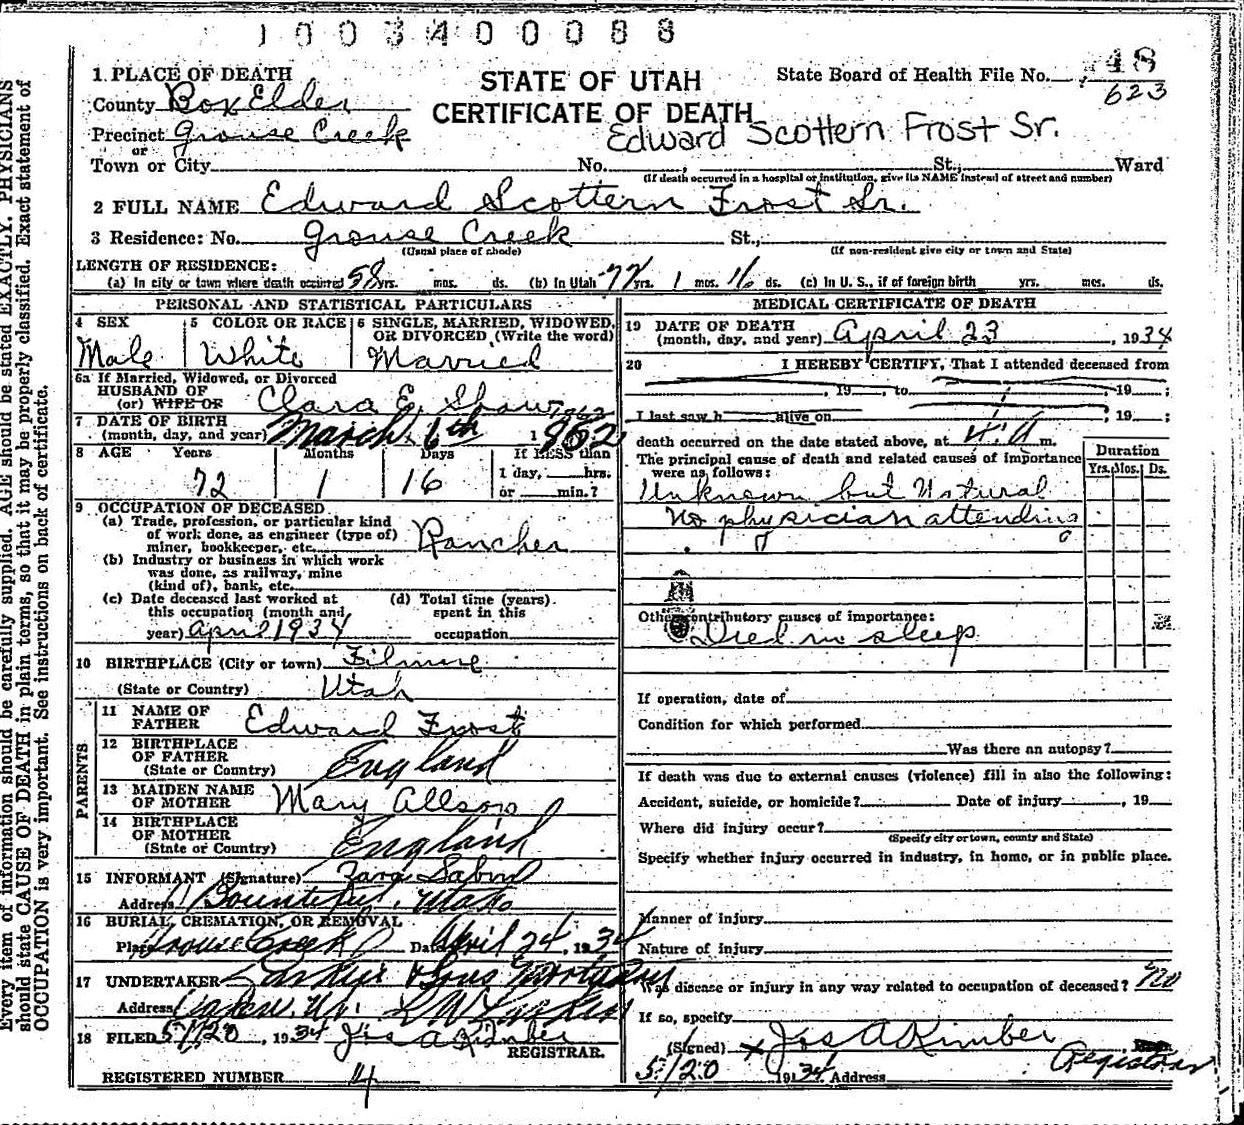 1003400088
1. PLACE OF DEATH
STATE OF UTAH
CERTIFICATE OF DEATH
State Board of Health File No. 48
623
County Box Elder
Precinct Grouse Creek
or
Edward Scottern Frost Sr.
Town or City No. St., Ward
(If death occurred in a hospital or institution, give its NAME instead of street and number)
2 FULL NAME Edward Scottern Frost Sr.
3 Residence: No. Grouse Creek St.,
(Usual place of abode) (If non-resident give city or town and State)
LENGTH OF RESIDENCE:
(a) In city or town where death occurred 58 yrs. mos. ds. (b) In Utah 72 yrs. 1 mos. 16 ds. (c) In U. S., if of foreign birth yrs. mos. ds.
PERSONAL AND STATISTICAL PARTICULARS
4 SEX
Male
5 COLOR OR RACE
White
6 SINGLE, MARRIED, WIDOWED, OR DIVORCED (Write the word)
Married
6a If Married, Widowed, or Divorced
HUSBAND OF
(or) WIFE OF Clara E. Shaw
1862
7 DATE OF BIRTH
(month, day, and year) March 6th 1862
8 AGE Years Months Days If LESS than
72 1 16 1 day, hrs.
or min.?
9 OCCUPATION OF DECEASED
(a) Trade, profession, or particular kind
of work done, as engineer (type of)
miner, bookkeeper, etc. Rancher
(b) Industry or business in which work
was done, as railway, mine
(kind of), bank, etc.
(c) Date deceased last worked at
this occupation (month and
year) April 1934
(d) Total time (years)
spent in this
occupation
10 BIRTHPLACE (City or town) Filmore
(State or Country) Utah
PARENTS
11 NAME OF
FATHER Edward Frost
12 BIRTHPLACE
OF FATHER
(State or Country) England
13 MAIDEN NAME
OF MOTHER Mary Allsop
14 BIRTHPLACE
OF MOTHER
(State or Country) England
15 INFORMANT (Signature)
Address Bountiful, Utah
16 BURIAL, CREMATION, OR REMOVAL
Place Grouse Creek Date April 24, 1934
17 UNDERTAKER & Sons Mortuary
Address
18 FILED 5/20, 1934 Jos A Kimber
REGISTRAR.
REGISTERED NUMBER 4
MEDICAL CERTIFICATE OF DEATH
19 DATE OF DEATH
(month, day, and year) April 23, 1934
20 I HEREBY CERTIFY, That I attended deceased from
, 19 , to , 19 ;
I last saw h alive on , 19 ;
death occurred on the date stated above, at 4. a m.
The principal cause of death and related causes of importance
were as follows:
Duration
Yrs. Mos. Ds.
Unknown but Natural
No physician attending
Other contributory causes of importance:
Died in sleep
If operation, date of
Condition for which performed
Was there an autopsy?
If death was due to external causes (violence) fill in also the following:
Accident, suicide, or homicide? Date of injury , 19
Where did injury occur?
(Specify city or town, county and State)
Specify whether injury occurred in industry, in home, or in public place.
Manner of injury
Nature of injury
Was disease or injury in any way related to occupation of deceased? No
If so, specify
(Signed) x Jos A Kimber
Registrar
5/20 1934 Address
Every item of information should be carefully supplied. AGE should be stated EXACTLY. PHYSICIANS
should state CAUSE OF DEATH in plain terms, so that it may be properly classified. Exact statement of
OCCUPATION is very important. See instructions on back of certificate.